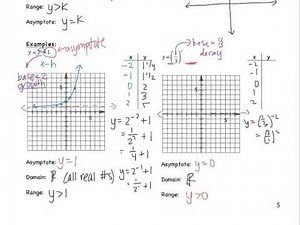 Range: y>K
Asymptote: y=K
Examples:
asymptote
x-h
base=2
growth
x y
-2 1 1/4
-1 1 1/2
0 2
1 3
2 5
y=2⁻²+1
= 1/2² +1
1/4 +1
y=2⁻¹+1
= 1/2¹ +1
Asymptote: y=1
Domain: ℝ (all real #s)
Range: y>1
base=1/3
decay
x y
-2
-1
0
1
2
Asymptote: y=0
Domain: ℝ
Range: y>0
5